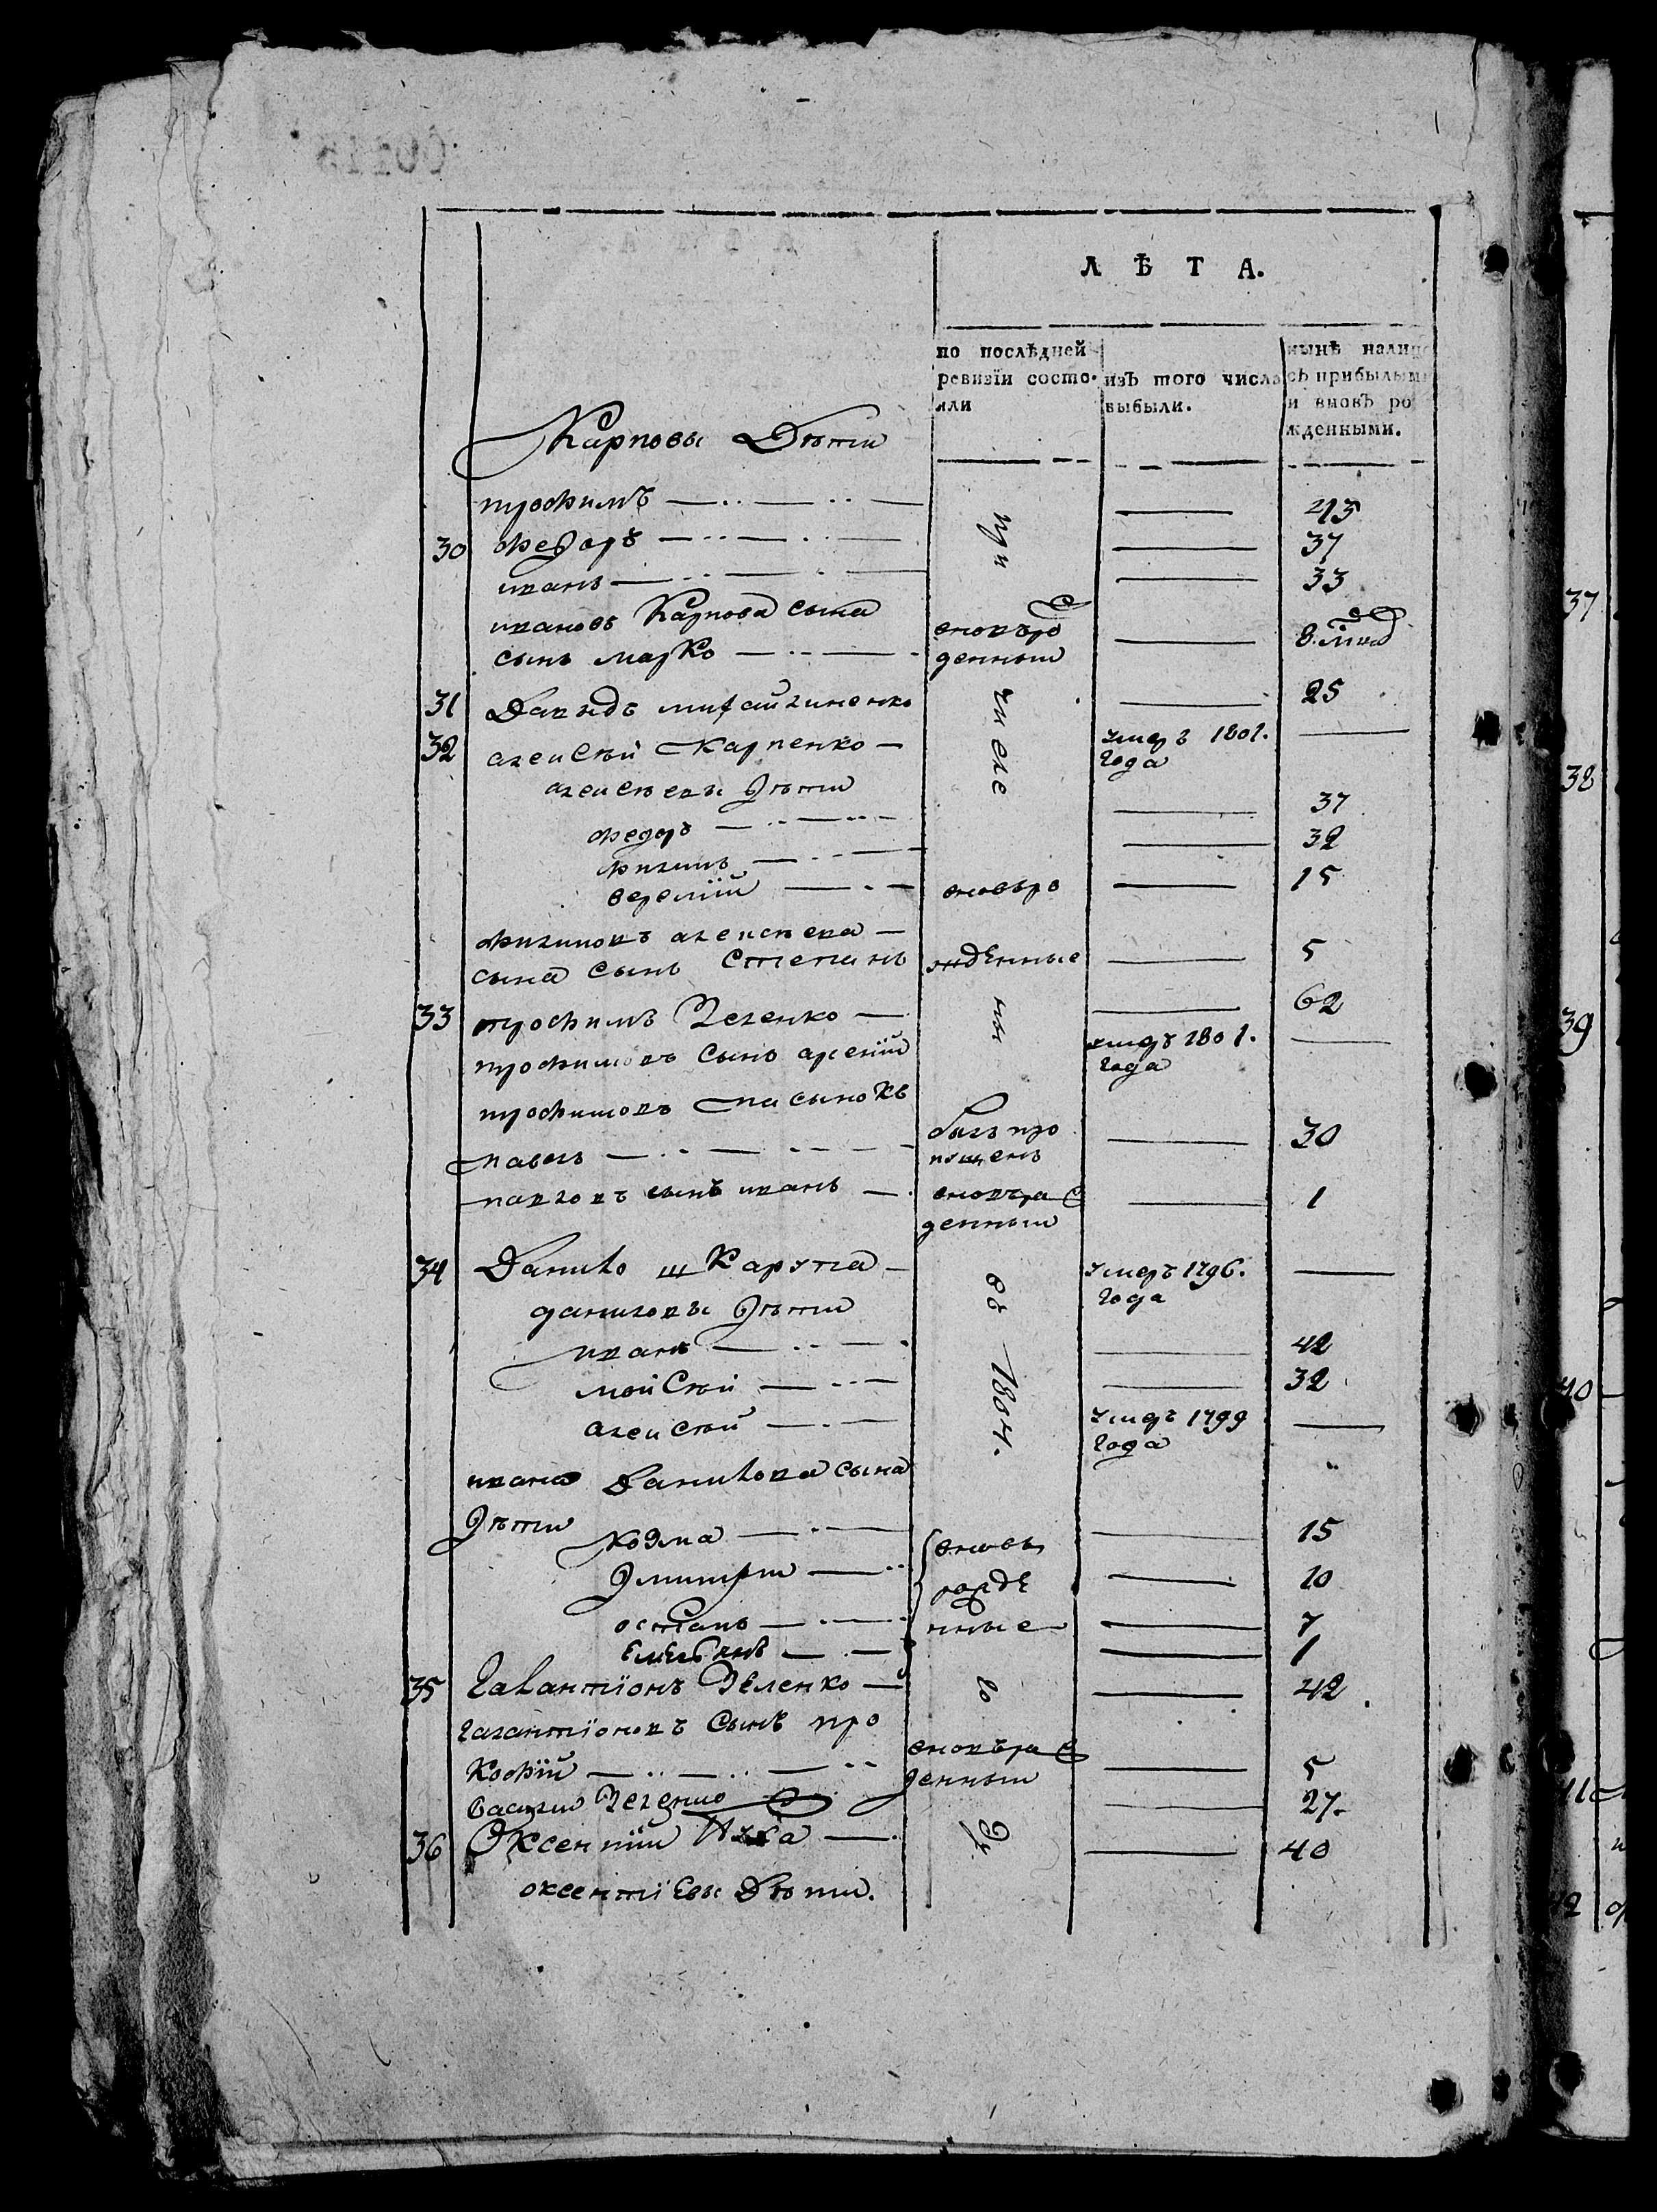 Л Ѣ Т А.
по послѣдней ревизіи состояли
изъ того числа выбыли.
нынѣ налицо съ прибылыми и вновь рожденными.
Карповы Дѣти
трофимъ — 43
30 федоръ — 37
иванъ — 33
ивановъ Карпова сына
сынъ марко — вновьро денный — 8. мцод
31 Давыдъ михайличенко — 25
32 алексѣй Карпенко — умеръ 1801. года —
алексѣевы дѣти
федоръ — 37
филипъ — 32
веремій — вновьро — 15
филиповъ алексѣева —
сына сынъ Степанъ жденные — 5
33 трофимъ Зеленко — 62
трофимовъ сынъ арсеній умеръ 1801. года —
трофимовъ пасынокъ
павелъ — былъ пропущенъ — 30
павловъ сынъ иванъ — вновьра денный — 1
34 Данило шКарупа — умеръ 1796. года —
даниловы дѣти
иванъ — 42
мойсѣй — 32
алексѣй — умеръ 1799 года —
ивана Данилова сына
дѣти
козма — вновь — 15
дмитрій — рожде — 10
остапъ — нные — 7
Емельянъ — 1
35 Галантіонъ Зеленко — 42.
галантіоновъ Сынъ про
кофій — вновьра денный — 5
василий Зеленко 27.
36 Оксентій — 40
оксентіевы Дѣти.
при
числе
ны
въ 1804.
го
37
38
39
40